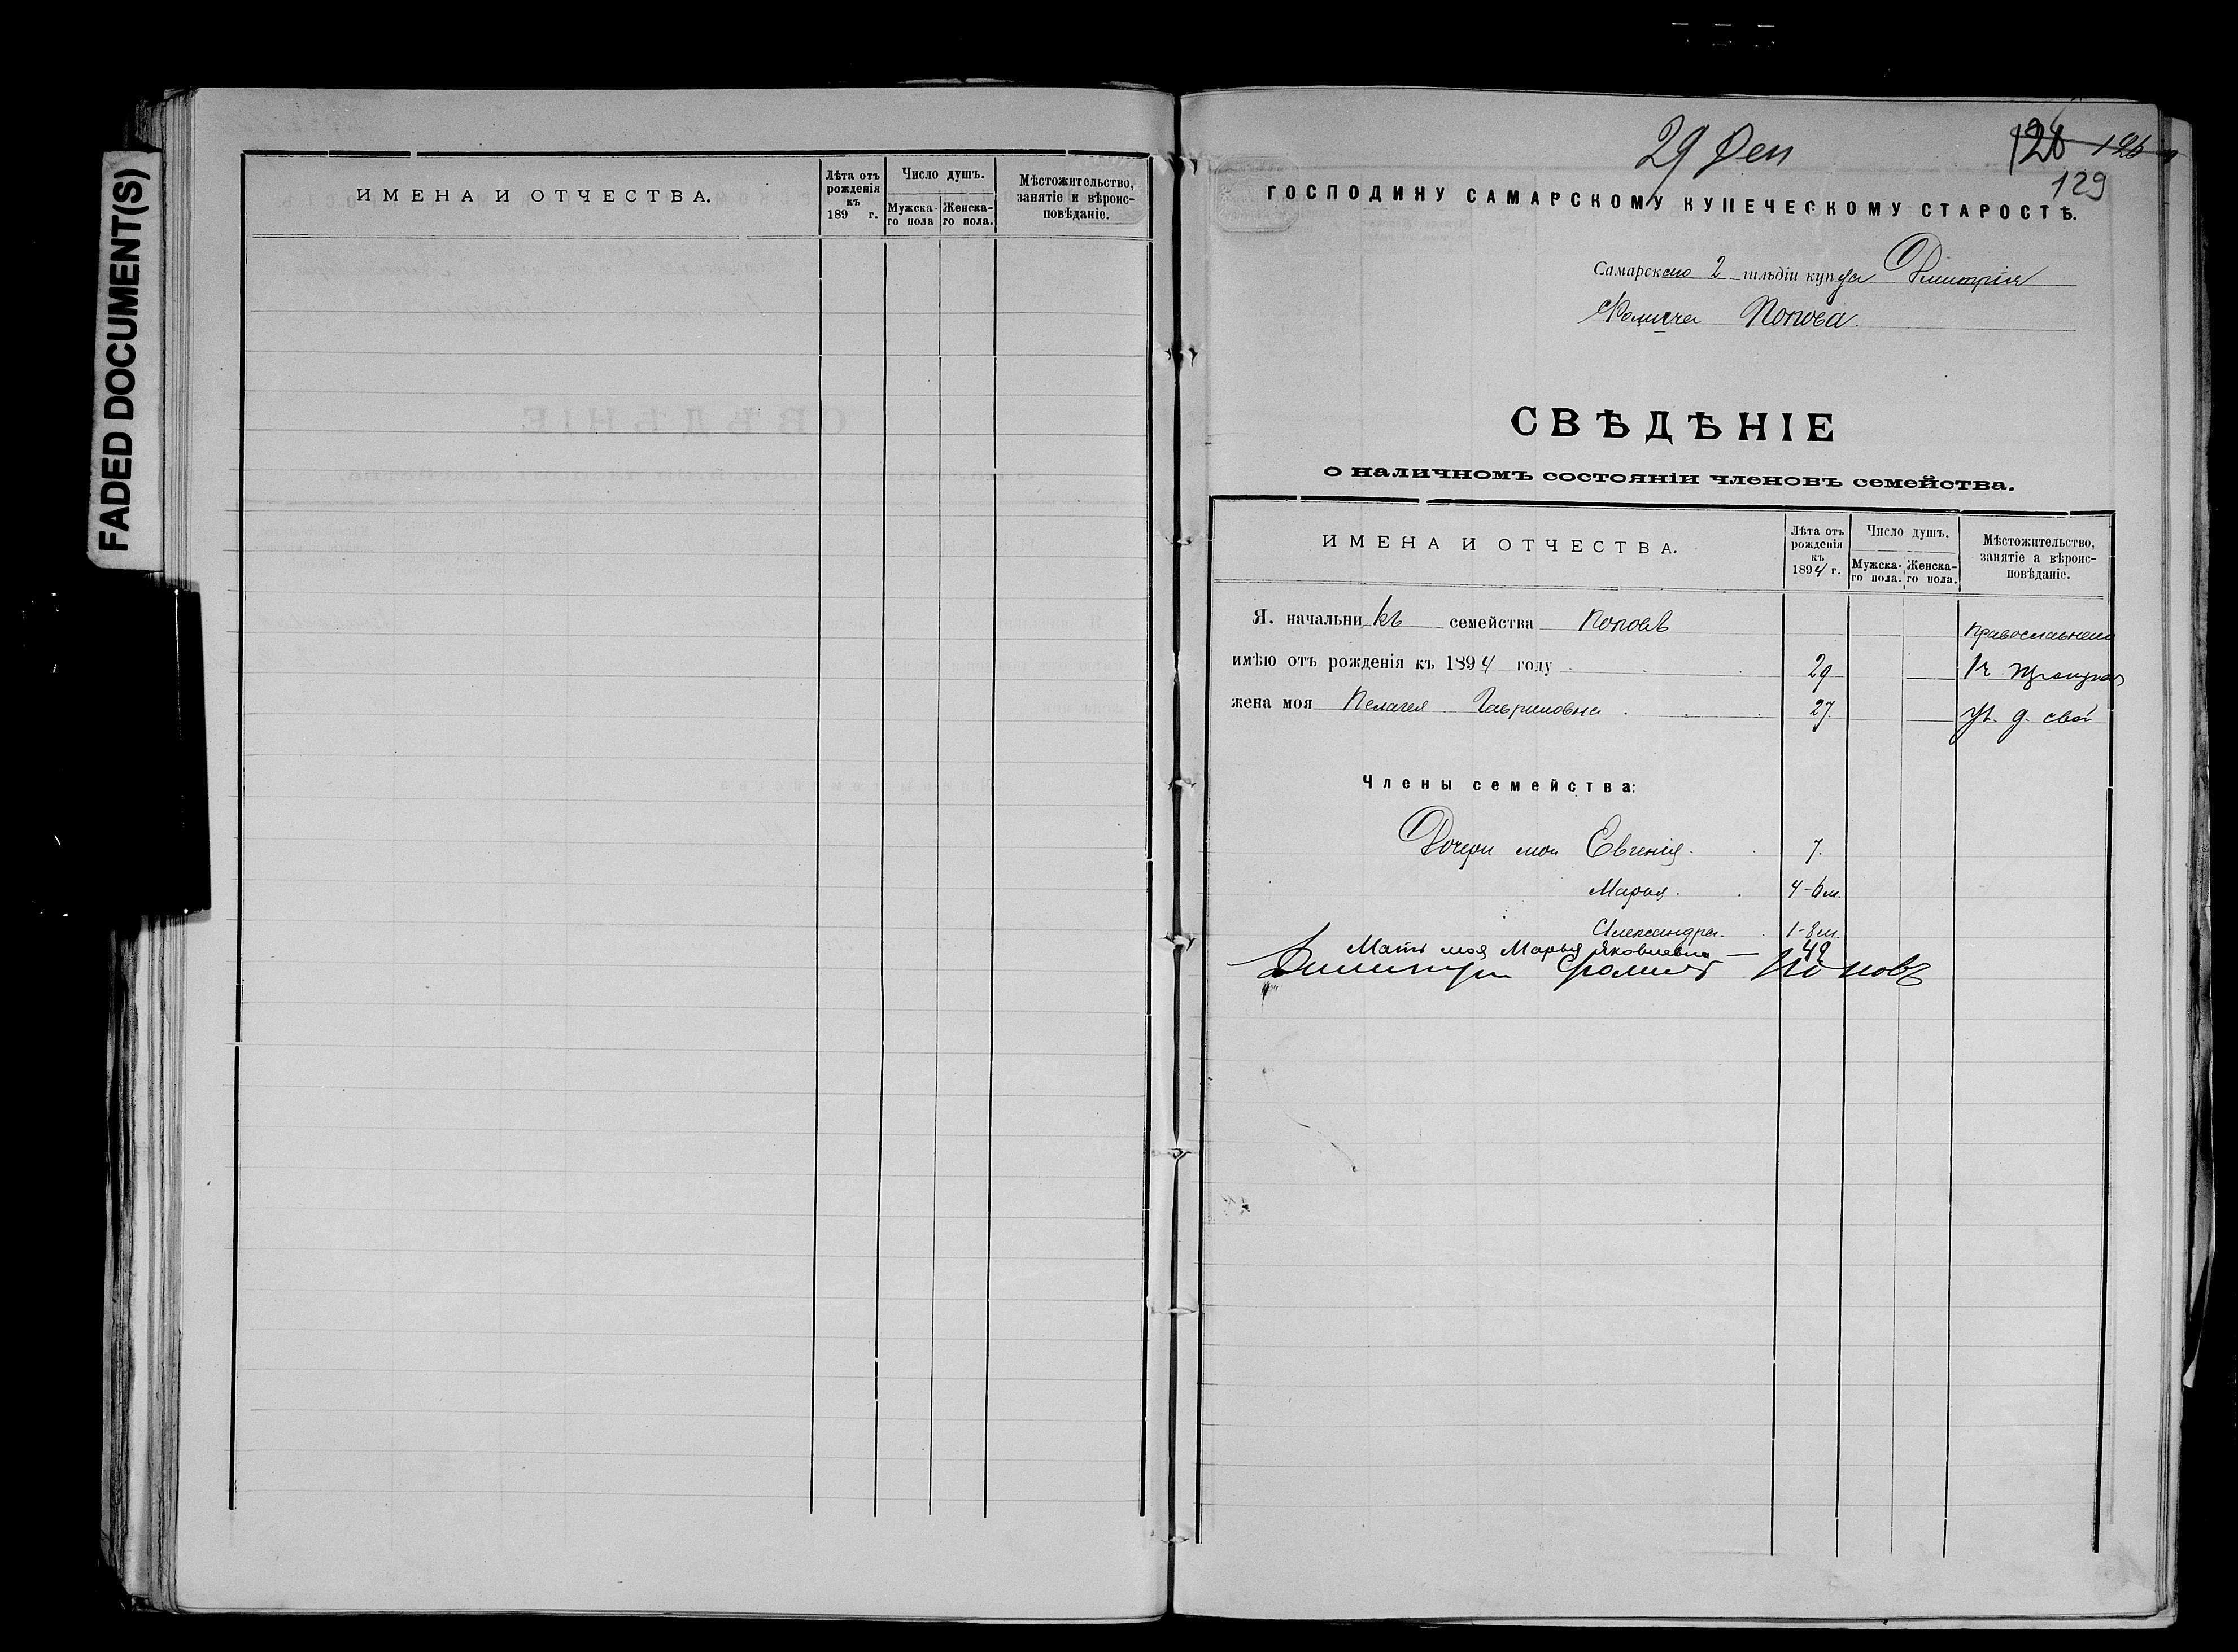 FADED DOCUMENT(S)
ИМЕНА И ОТЧЕСТВА.
Лѣта отъ рожденія къ 189 г.
Число душъ.
Мужска-го пола
Женска-го пола.
Мѣстожительство, занятіе и вѣроис-повѣданіе.
29 Дек
128 126
129
ГОСПОДИНУ САМАРСКОМУ КУПЕЧЕСКОМУ СТАРОСТѢ.
Самарскаго 2 гильдіи купца Дмитрія
Фомича Попова.
СВѢДѢНІЕ
о наличномъ состояніи членовъ семейства.
ИМЕНА И ОТЧЕСТВА.
Лѣта отъ рожденія къ 1894 г.
Число душъ.
Мужска-го пола.
Женска-го пола.
Мѣстожительство, занятіе а вѣроис-повѣданіе.
Я. начальникъ семейства Поповъ
православнаго
имѣю отъ рожденія къ 1894 году 29
жена моя Пелагея Гавриловна 27.
д. свой
Члены семейства:
Дочери мои Евгенія. 7.
Марья. 4-6 м.
Александра. 1-8 м.
Мать моя Марья Яковлевна — 49
Димитри Фомичъ Поповъ